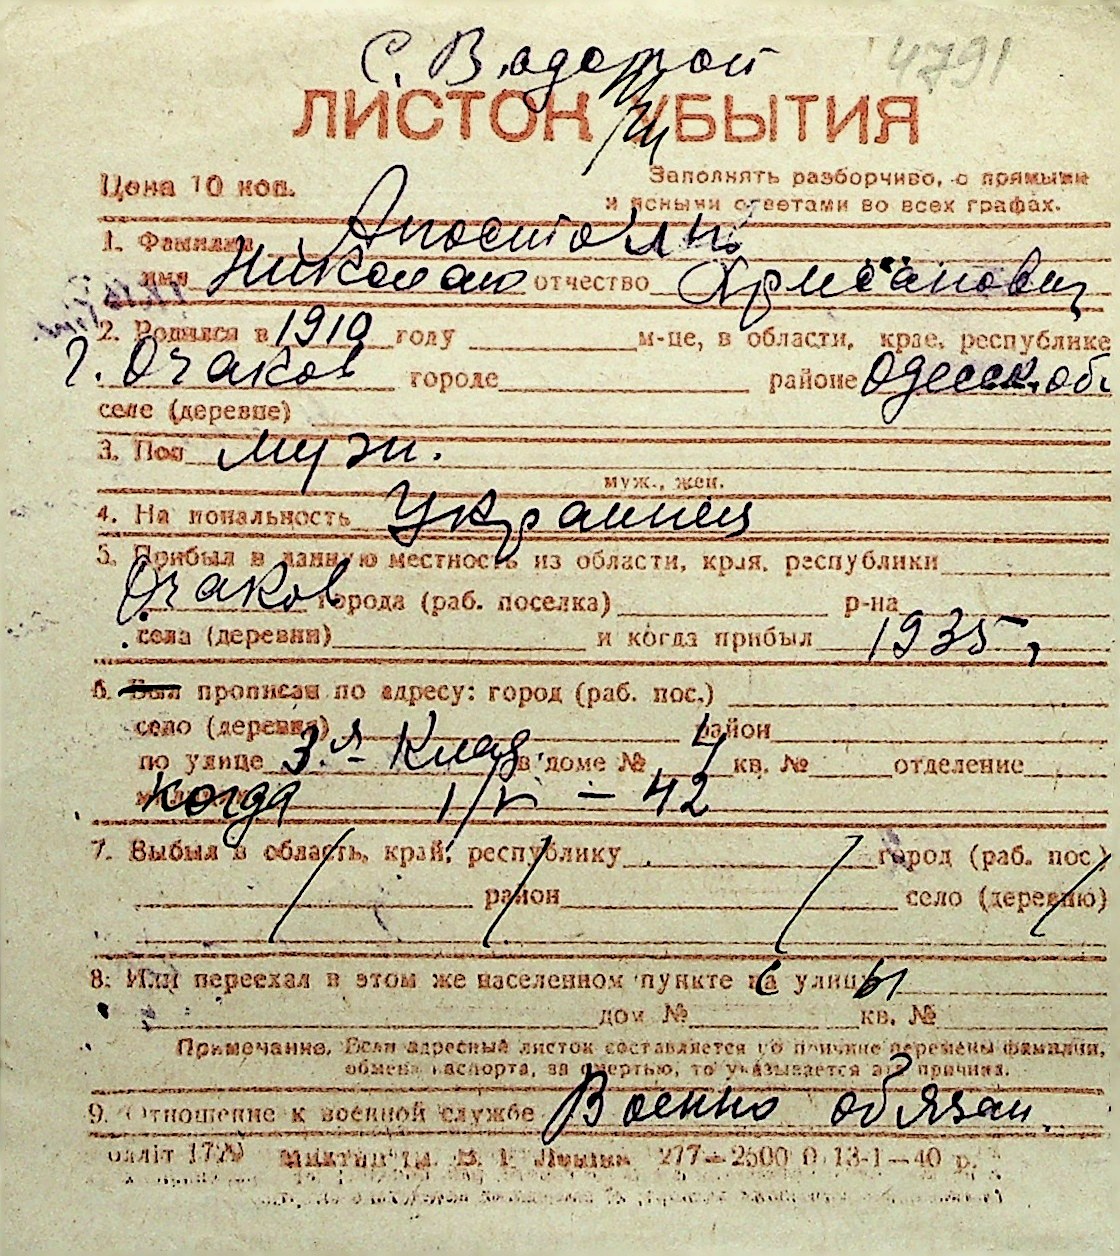 С. Водопой 4791
ЛИСТОК УБЫТИЯ
Цена 10 коп. Заполнять разборчиво, с прямыми
и ясными ответами во всех графах.
1. Фамилия Апостолий
имя Николай отчество
2. Родился в 1910 году м-це, в области, крае, республике
г. Очаков городе районе Одесск. обл.
селе (деревне)
3. Пол муж.
муж., жен.
4. Национальность Украинец
5. Прибыл в данную местность из области, края, республики
Очаков города (раб. поселка) р-на
села (деревни) и когда прибыл 1935 г
6. Был прописан по адресу: город (раб. пос.)
село (деревня) район
по улице 3-я Клад. в доме № 4 кв. № отделение
когда 1/VI – 42
7. Выбыл в область, край, республику город (раб. пос.)
район село (деревню)
8. Или переехал в этом же населенном пункте с улицы
дом № кв. №
Примечание. Если адресный листок составляется по причине перемены фамилии,
обмена паспорта, за смертью, то указывается эта причина.
9. Отношение к военной службе Военно обязан.
277—2500 0 13-1—40 р.